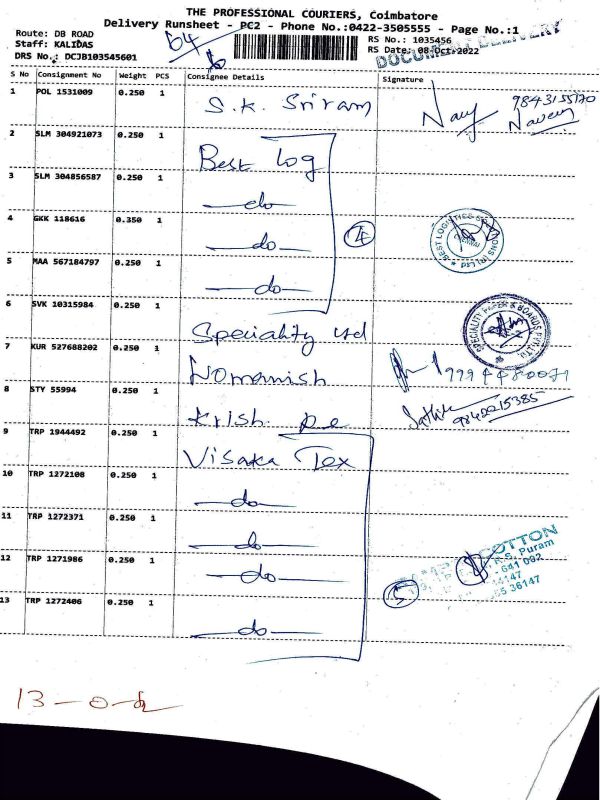 THE PROFESSIONAL COURIERS, Coimbatore
Delivery Runsheet - PC2 - Phone No.:0422-3505555 - Page No.:1
Route: DB ROAD
Staff: KALIDAS
DRS No.: DCJB103545601
64
RS No.: 1035456
RS Date: 08-Oct-2022
DOCUMENT DELIVERY
S No Consignment No Weight PCS Consignee Details Signature
1 POL 1531009 0.250 1 S.K. Sriram 9843155170
Naveen
2 SLM 304921073 0.250 1 Best log
3 SLM 304856587 0.250 1 —do—
4 GKK 118616 0.350 1 —do— 4
BEST LOGISTICS SOLUTIONS (P) Ltd
CHENNAI
5 MAA 567184797 0.250 1 —do—
6 SVK 10315984 0.250 1 Speciality Ltd
SPECIALITY PAPER & BOARDS PVT. LTD.
7 KUR 527688202 0.250 1
8 STY 55994 0.250 1 Krish
9840215385
9 TRP 1944492 0.250 1 Visaka Tex
10 TRP 1272108 0.250 1 —do—
11 TRP 1272371 0.250 1 —do—
12 TRP 1271986 0.250 1 —do— 5
COTTON
R.S. Puram
- 641 002
36147
13 TRP 1272406 0.250 1 —do—